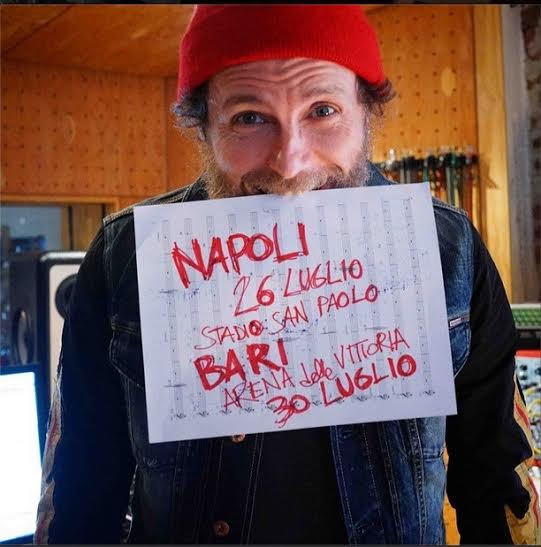 NAPOLI
26 LUGLIO
STADIO SAN PAOLO
BARI
ARENA delle VITTORIA
30 LUGLIO